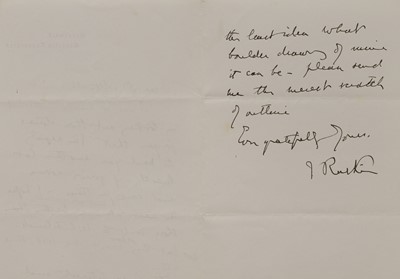 the least idea what
boulder drawing of mine
it can be – please send
me the merest scratch
of outline
Ever gratefully Yours.
J Ruskin